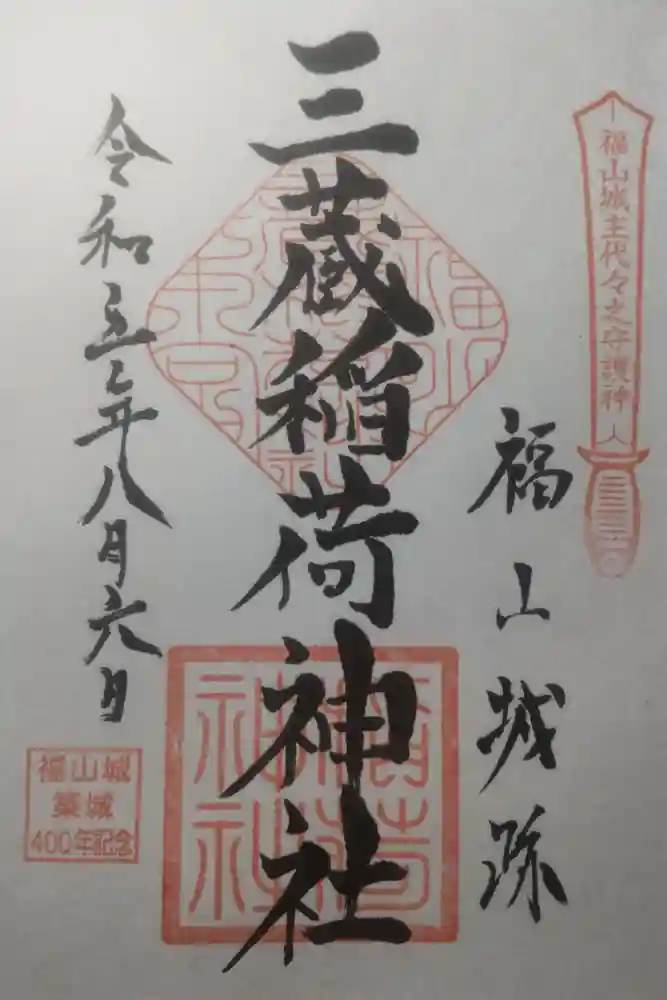 福山城主代々之守護神
福山城跡
三蔵稲荷神社
稲荷
神社
令和五年八月六日
福山城
築城
400年記念